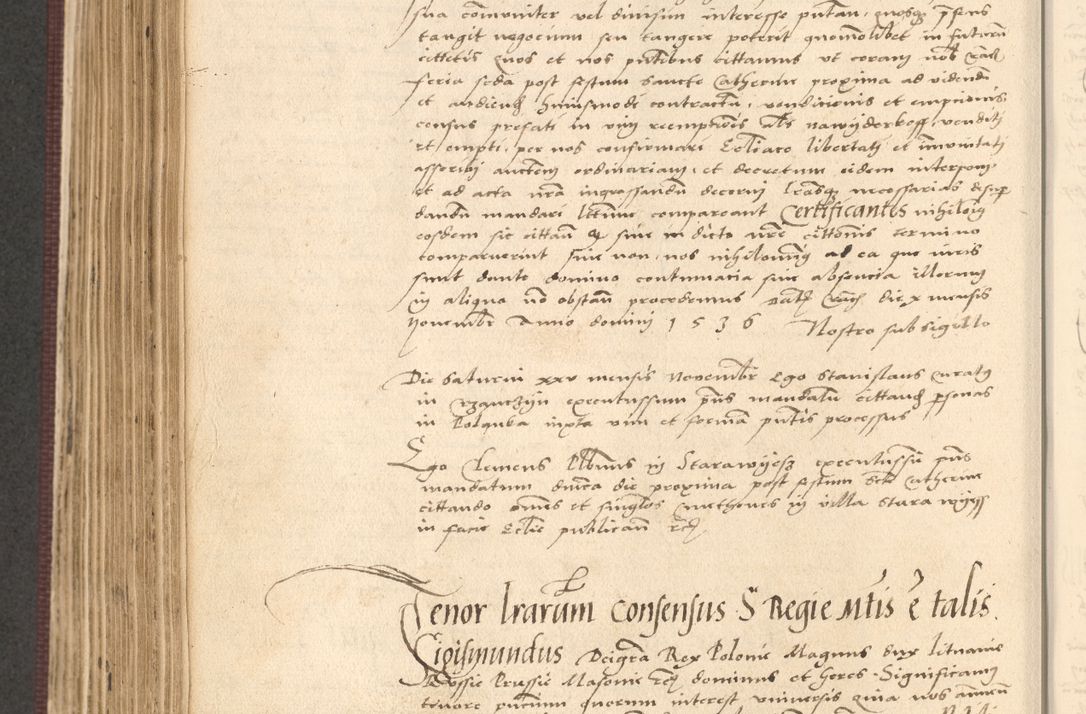 sua com̄uniter vel diuisim interesse putan. quosq̨ p̄sens
tangit negocium seu tangere poterit quomolibet in futurū
cittetis quos et nos pn̄tibus cittamus vt coram nob̄
feria scd̄a post festum sancte Catherine proxima ad videndū
et audiend̄ huiusmodi contractū, venditionis et emptionis
census prefati in vim reemptiōis al̄s nawyderkoff, venditi
et empti, per nos confirmari Ecl̄iaco libertati et im̄unitati
asscribi auctem̄ ordinariam, et decretum eidem interponi
et ad acta nr̄a ingrossandū decerni lr̄asq̨ necessarias desup
dandū mandari lt̄time compareant Certificantes nihilom̄
eosdem sic cittatī q̨ siue in dicto nr̄e cittōnis termino
comparuerint siue non, nos nihilominꝰ ad ea que iuris
sunt dante domino contumacia siue absencia illorum
in aliquo nō obstan̄ procedemus Dat̄ Crac̄ die x mensis
Nouembr̄ Anno domini 1536 Nostro sub sigillo
Die Saturni xxv mensis Nouembr̄ Ego Stanislaus Curatꝰ
in executussum p̄ns mandatū cittand̄ p̄sonas
in Polanka iuxta vim et formā pn̄tis processus
Ego Clemens Plb̄nus in Starawyesz executussū p̄ns
mandatum dn̄ica die proxima post festum Sctē Catherine
cittando om̄es et singl̄os cmethones in villa Stara wyess
in facie Ecl̄ie publican̄ etc̄
Tenor lr̄arūm Consensus S Regie Mt̄is ē talis.
Sigismundus Dei gr̄a Rex Polonie Magnus Dux Lituanie
Russie Prussie Masouie etc̄ dominus et heres. Significamꝰ
tenore pn̄cium quorum interest vniuersis quia nos